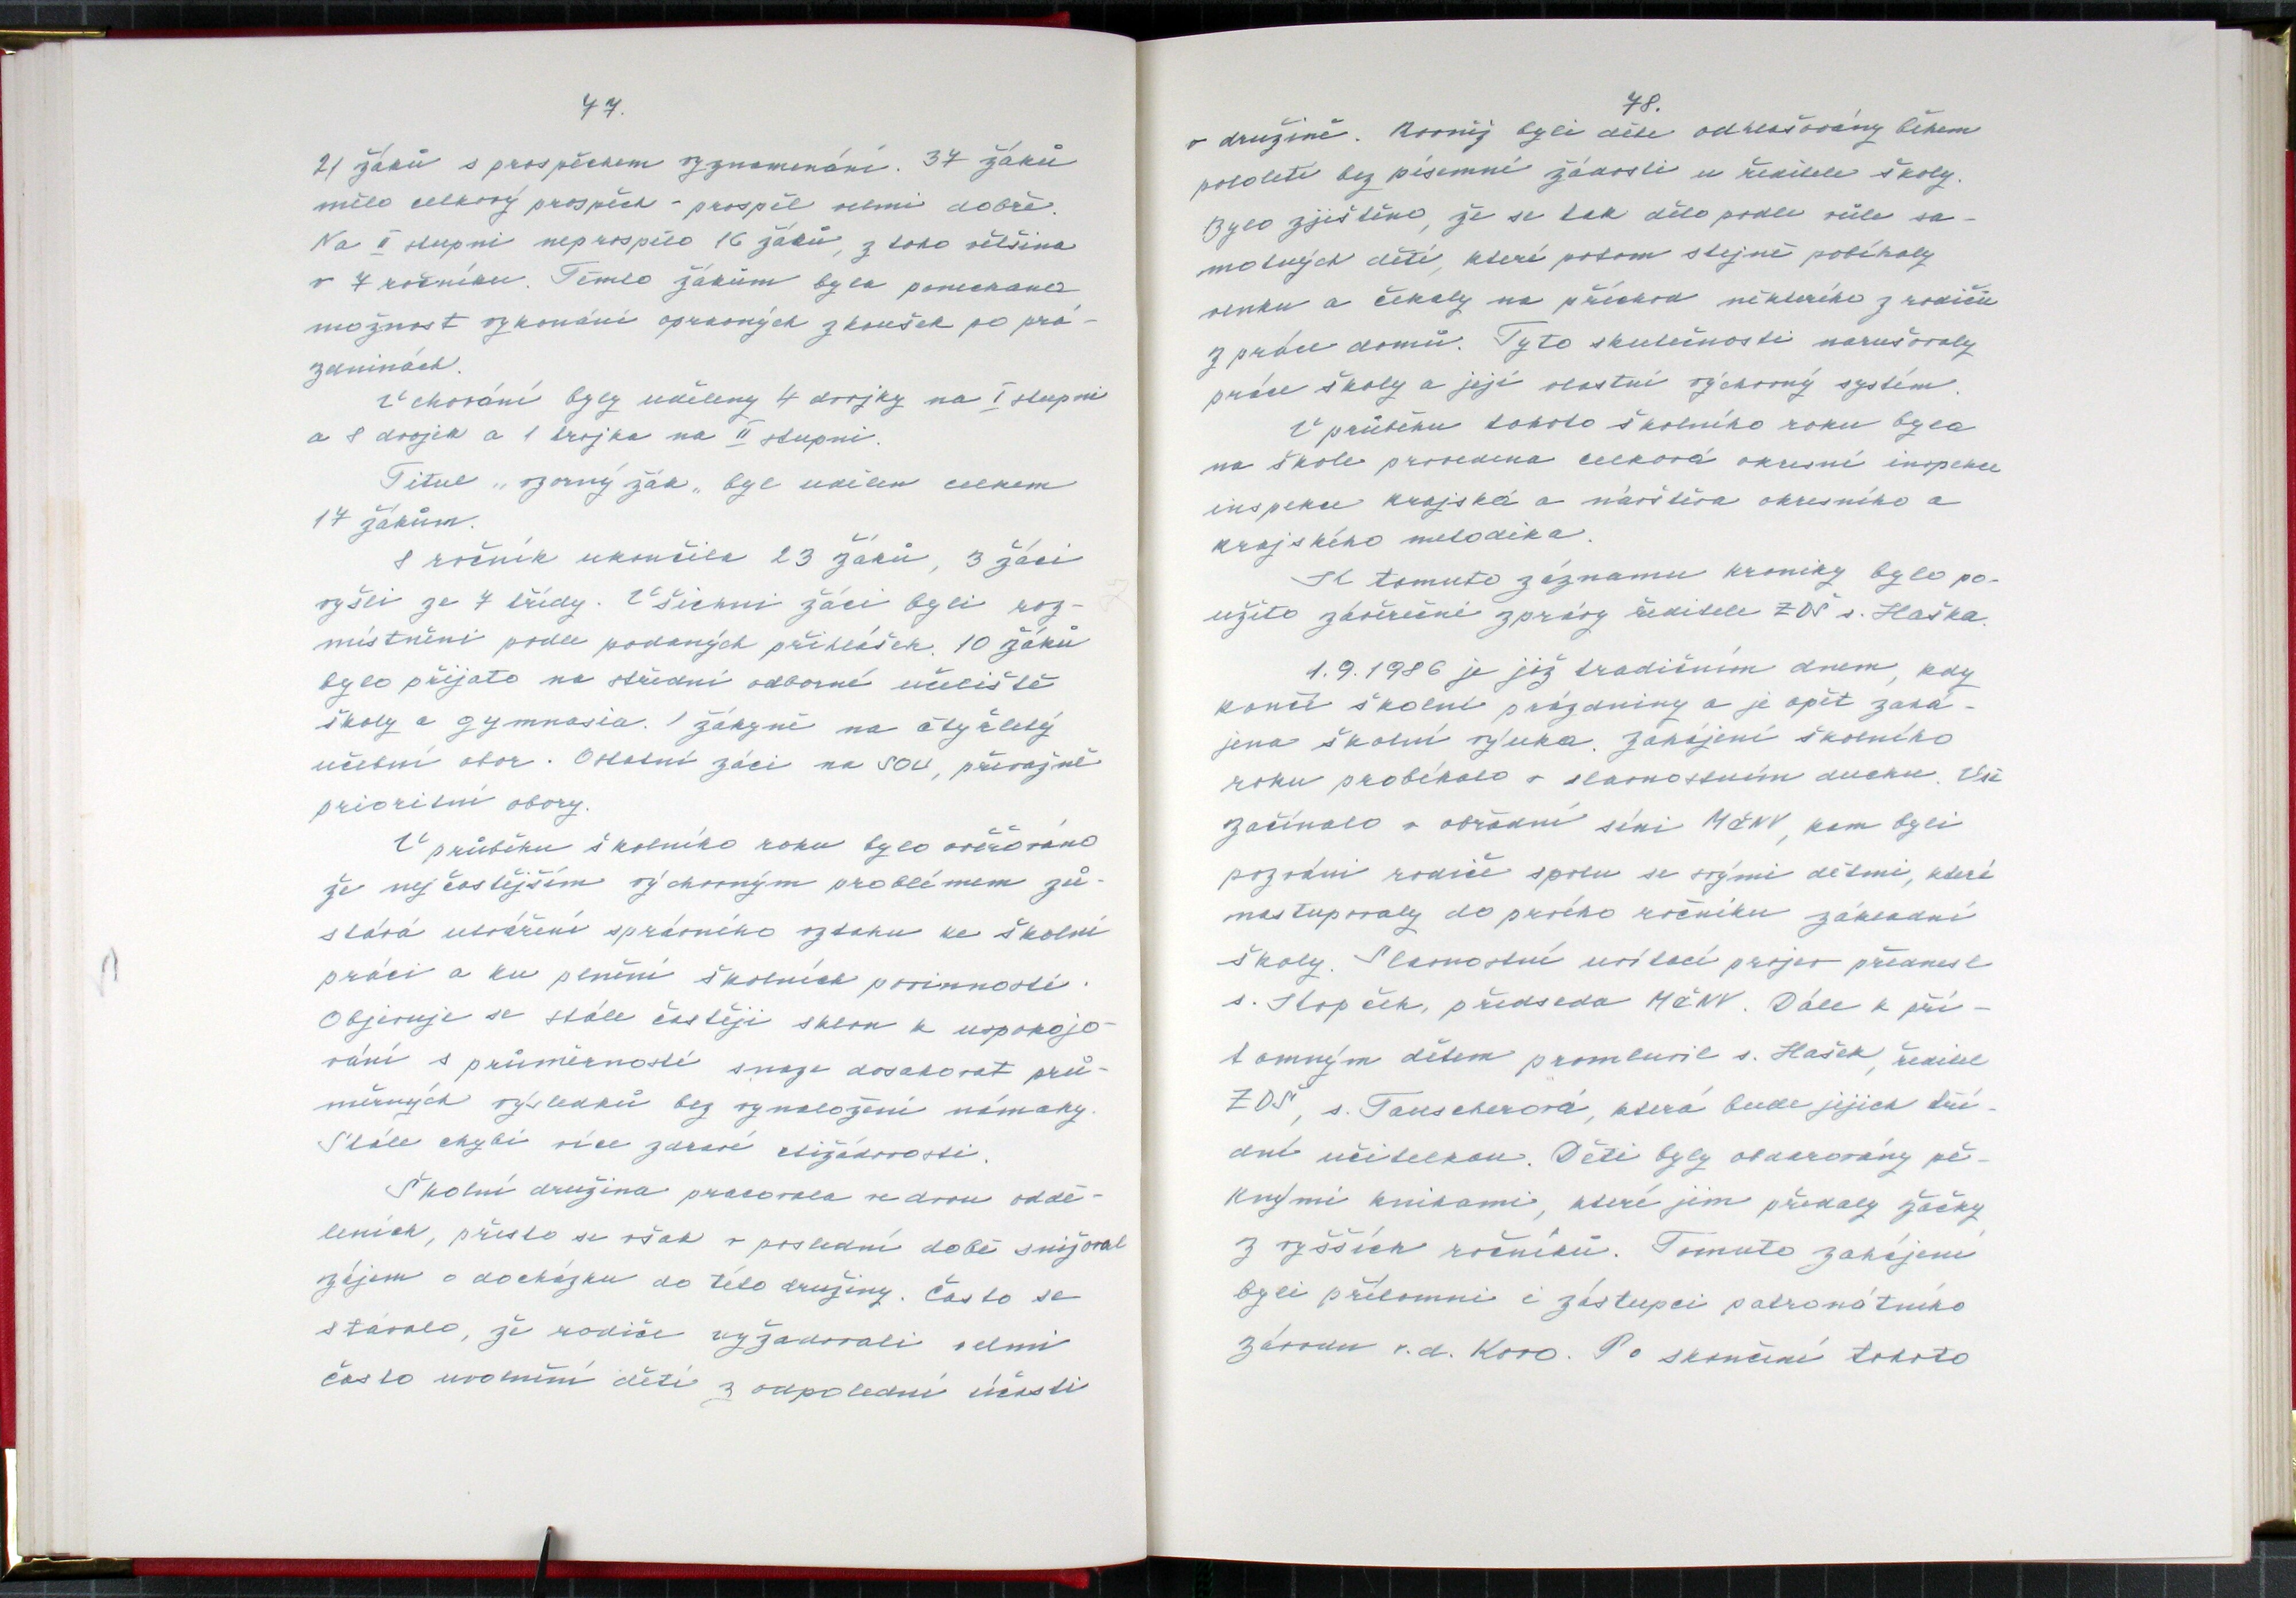 77.
21 žáků s prospěchem vyznamenání. 37 žáků
mělo celkový prospěch - prospěl velmi dobře.
Na II stupni neprospělo 16 žáků, z toho většina
v 7 ročníku. Těmto žákům byla ponechana
možnost vykonání opravných zkoušek po prá-
zdninách.
V chování byly uděleny 4 dvojky na I stupni
a 8 dvojek a 1 trojka na II stupni.
Titul „vzorný žák„ byl udělen celkem
17 žákům.
8 ročník ukončila 23 žáků, 3 žáci
vyšli ze 7 třídy. Všichni žáci byli roz-
místněni podle podaných přihlášek. 10 žáků
bylo přijato na střední odborné učeliště
školy a gymnasia. 1 žákyně na čtyřletý
učební obor. Ostatní žáci na SOU, převážně
prioritní obory.
V průběhu školního roku bylo ověřováno
že nejčastějším výchovným problémem zů-
stává utváření správného vztahu ke školní
práci a ku plnění školních povinností.
Objevuje se stále častěji sklon k uspokojo-
vání s průměrností snaze dosahovat prů-
měrných výsledků bez vynaložení námahy.
Stále chybí více zdravé ctižádosti.
Školní družina pracovala ve dvou oddě-
leních, přesto se však v poslední době snižoval
zájem o docházku do této družiny. Často se
stávalo, že rodiče vyžadovali velmi
často uvolnění dětí z odpolední účasti
78.
v družině. Rovněž byli děte odhlašovány během
pololetí bez písemné žádosti u ředitele školy.
Bylo zjištěno, že se tak dělo podle vůle sa-
motných dětí, které potom stejně pobíhaly
venku a čekaly na příchod některého z rodičů
z práce domů. Tyto skutečnosti narušovaly
práce školy a její vlastní výchovný systém.
V průběhu tohoto školního roku byla
na škole provedena celková okresní inspekce
inspekce krajská a návštěva okresního a
krajského metodika.
K tomuto záznamu kroniky bylo po-
užito závěrečné zprávy ředitele ZDŠ s. Haška.
1.9.1986 je již tradičním dnem, kdy
končí školní prázdniny a je opět zahá-
jena školní výuka. Zahájení školního
roku probíhalo v slavnostním duchu. Vše
začínalo v obřadní síni MěNV, kam byli
pozváni rodiče spolu se svými dětmi, které
nastupovaly do prvého ročníku základní
školy. Slavnostní uvítací projev přednesl
s. Stopček, předseda MěNV. Dále k pří-
tomným dětem promluvil s. Hašek, ředitel
ZDŠ, s. Tauscherová, která bude jejich tří-
dní učitelkou. Děti byly obdarovány pě-
knými knihami, které jim předaly žačky
z vyšších ročníků. Tomuto zahájení
byli přítomni i zástupci patronátního
závodu v.d. Kovo. Po skončení tohoto